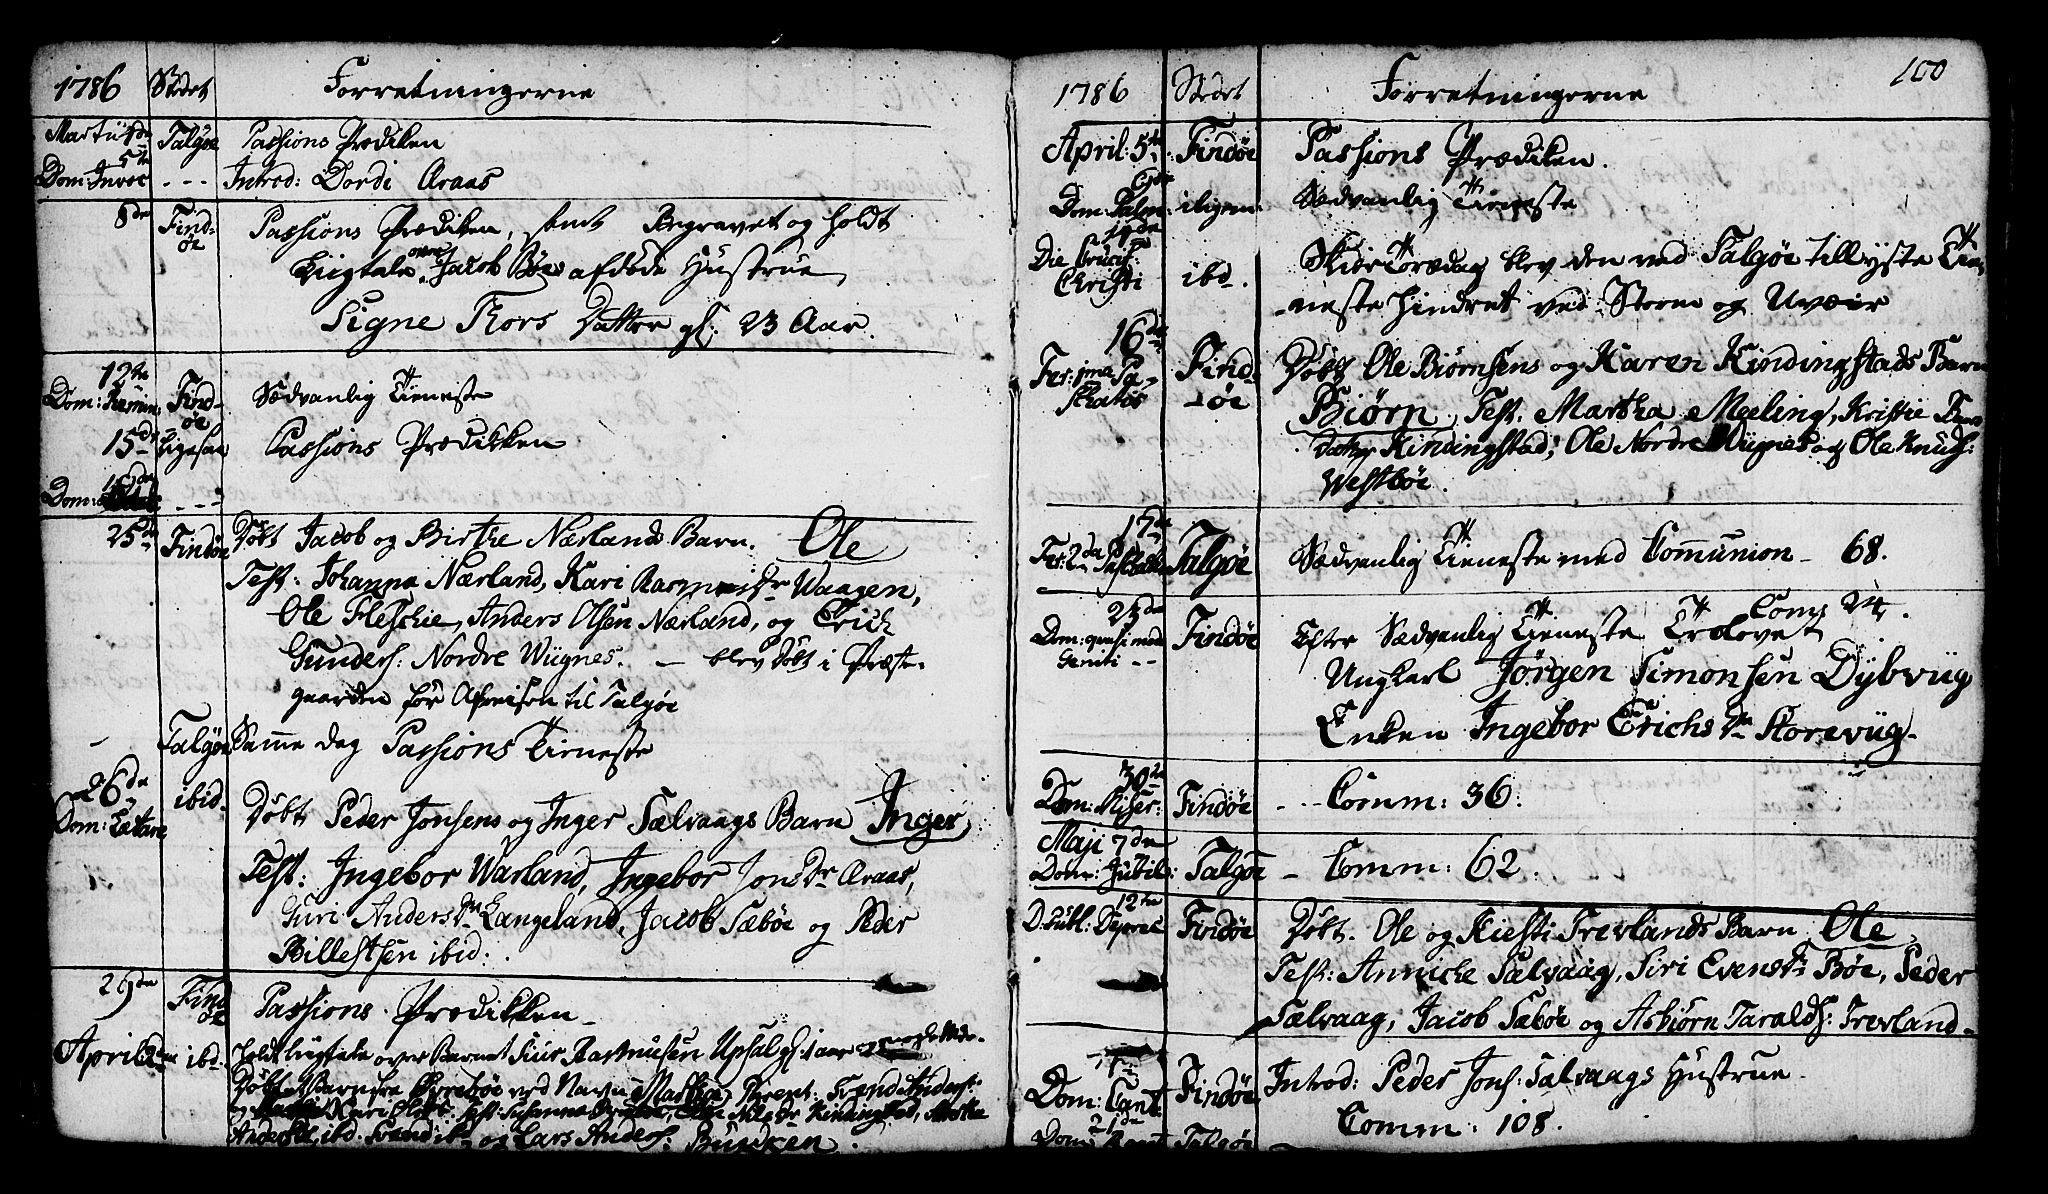 1786 Stedet Forretningerne
Martii 1de Talgøe Passions Prædiken
5te Dom: Invoc - - - Introd: Dordi Araas
8de Findøe Passions Prædiken, samt Begravet og holdt
Liigtale over Jacob Bøes afdøde Hustrue
Signe Thors Datter gl: 23 Aar.
12te Dom: Findøe Sædvanlig Tieneste
15de Ligesaa Passions Prædikken
Dom: - - -
25de Findøe Døbt Jacob og Birthe Nærlands Barn. Ole
Test: Johanna Nærland, Kari Rasmusdr Waagen,
Ole Fleskie, Anders Olsen Nærland, og Erich
Gunders: Nordre Wiignes. — blev døbt i Præste-
gaarden før Afreisen til Talgøe
Talgøe Samme dag Passions Tieneste
26de Dom: Lætare ibid. Døbt Peder Jonsens og Inger Sælvaags Barn Inger
Test: Ingebor Warland, Ingebor Jonsdr Araas,
Guri Andersdr Langeland, Jacob Sæbøe og Peder
Billestsen ibid:.
29de Findøe Passions Prædikken
April 2den ibd. holdt liigtale over Barnet Siur Rasmusen Upsal gl: 1 aar
Døbt Barn ved Navn Martha
Kari Test: Susanna Nilsdr Kindingstad,
ibd. Svend og Lars Anders:
1786 Stedet Forretningerne 100
April: 5te Findøe Passions Prædiken.
9de Dom: Palm: iligem: Sædvanlig Tieneste
Die Cruci: Christi ibd. Skiertorsdag blev den ved Talgøe tillyste Tie-
neste hindret ved Storm og Uveir
16de Fer: 1ma Pa- schatos Findøe Døbt Ole Biørnsens og Karen Kindingstads Barn
Biørn, Test. Martha Meeling, Kristie
Datter Kindingstad, Ole Nordre Wiignes og Ole Knuds:
Westbøe.
17de Fer: 2da Talgøe Sædvanlig Tieneste med Communion - 68.
23de Dom: quasi modo Geniti - - Findøe Efter Sædvanlig Tieneste Trolovet Com: 24.
Ungkarl Jørgen Simonsen Dybviig
Enken Ingebor Erichsdr Storeviig.
30te Dom: Miser: Findøe - - - Comm: 36.
Maji 7de Dom: Jubil: Talgøe - Comm: 62.
12te D: Publ: Deprec Findøe Døbt. Ole og Kiesti Trevlands Barn Ole
Test: Anniche Sælvaag, Siri Evensdr Bøe, Peder
Sælvaag, Jacob Sæbøe og Asbiørn Taralds: Trevland.
Dom: Cant Findøe Introd: Peder Jons: Sælvaags Hustrue.
Comm: 108.
21de Dom: Talgøe